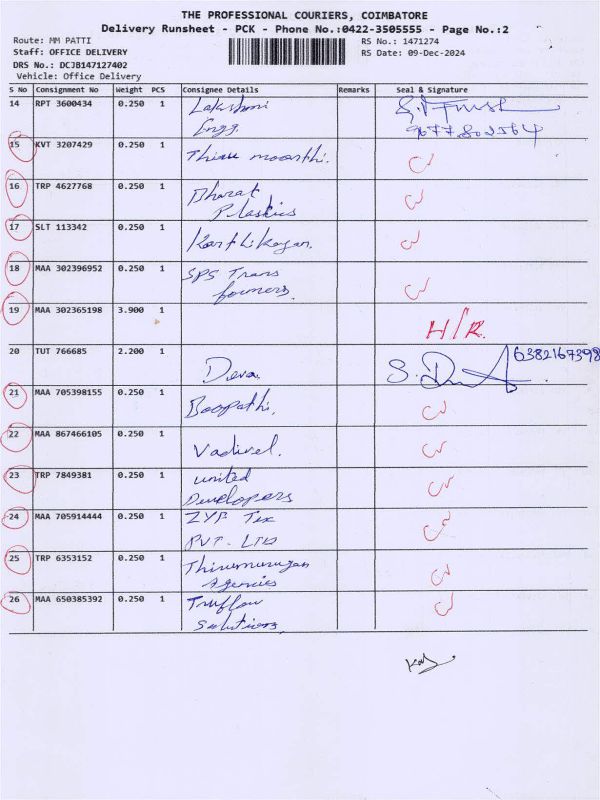 THE PROFESSIONAL COURIERS, COIMBATORE
Delivery Runsheet - PCK - Phone No.:0422-3505555 - Page No.:2
Route: MM PATTI
RS No.: 1471274
Staff: OFFICE DELIVERY
RS Date: 09-Dec-2024
DRS No.: DCJB147127402
Vehicle: Office Delivery
S No Consignment No Weight PCS Consignee Details Remarks Seal & Signature
14 RPT 3600434 0.250 1 Lakshmi
Engg.
15 KVT 3207429 0.250 1 Thiru moorthi.
16 TRP 4627768 0.250 1 Bharat
Plastics
17 SLT 113342 0.250 1 Karthikayan.
18 MAA 302396952 0.250 1 SPS Trans
formers.
19 MAA 302365198 3.900 1 H/R.
20 TUT 766685 2.200 1 Deva. 6382167398
21 MAA 705398155 0.250 1 Boopathi.
22 MAA 867466105 0.250 1 Vadivel.
23 TRP 7849381 0.250 1 united
Developers
24 MAA 705914444 0.250 1 ZYF Tex
PVT. LTD
25 TRP 6353152 0.250 1 Thirumurugan
Agencies
26 MAA 650385392 0.250 1 Truflow
Solutions.